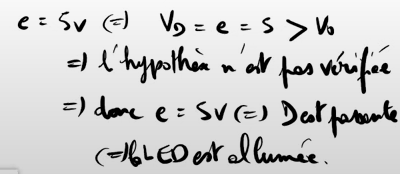 e = 5v (=) V_D = e = 5 > V_0
=) l'hypothèse n'est pas vérifiée
=) donc e = 5V (=) D est passante
(=) la LED est allumée.